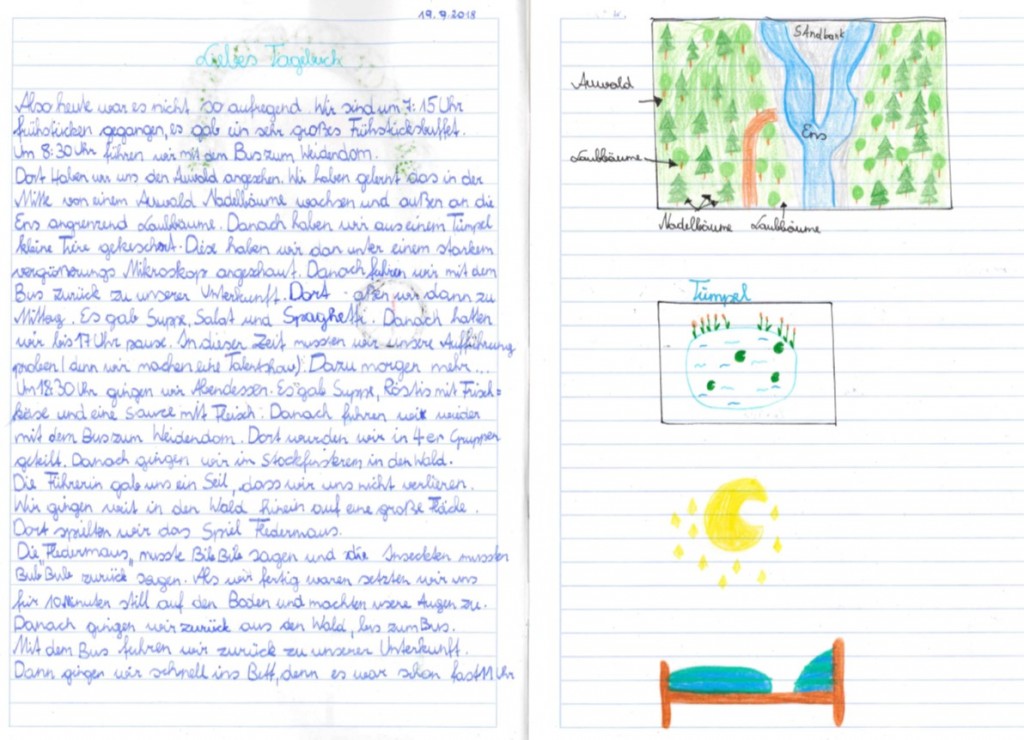 19.9.2018
Liebes Tagebuch
Also heute war es nicht so aufregend. Wir sind um 7:15 Uhr
frühstücken gegangen, es gab ein sehr großes Frühstücksbuffet.
Um 8:30 Uhr fuhren wir mit dem Bus zum Weidendom.
Dort Haben wir uns den Auwald angesehen. Wir haben gelernt das in der
Mitte von einem Auwald Nadelbäume wachsen und außen an die
Ens angrenzend Laubbäume. Danach haben wir aus einem Tümpel
kleine Tiere gekeschert. Diese haben wir dan unter einem starkem
vergrößerungs Mikroskop angeschaut. Danach fuhren wir mit dem
Bus zurück zu unserer Unterkunft. Dort aßen wir dann zu
Mittag. Es gab Suppe, Salat und Spaghetti. Danach hatten
wir bis 17 Uhr pause. In dieser Zeit mussten wir unsere Aufführung
proben (denn wir machen eine Talentshow). Dazu morgen mehr...
Um 18:30 Uhr gingen wir Abendessen. Es gab Suppe, Röstis mit Frisch=
käse und eine Sauce mit Fleisch. Danach fuhren wir wieder
mit dem Bus zum Weidendom. Dort wurden wir in 4er Gruppen
geteilt. Danach gingen wir im Stockfinsteren in den Wald.
Die Führerin gab uns ein Seil, dass wir uns nicht verlieren.
Wir gingen weit in den Wald hinein auf eine große Fläche.
Dort spielten wir das Spiel Fledermaus.
Die „Fledermaus„ musste Bib Bib sagen und die Inseckten mussten
Bub Bub zurück sagen. Als wir fertig waren setzten wir uns
für 10 Minuten still auf den Boden und machten unsere Augen zu.
Danach gingen wir zurück aus den Wald, bis zum Bus.
Mit dem Bus fuhren wir zurück zu unserer Unterkunft.
Dann gingen wir schnell ins Bett, denn es war schon fast 11 Uhr
Sandbank
Auwald
Ens
Laubbäume
Nadelbäume Laubbäume
Tümpel